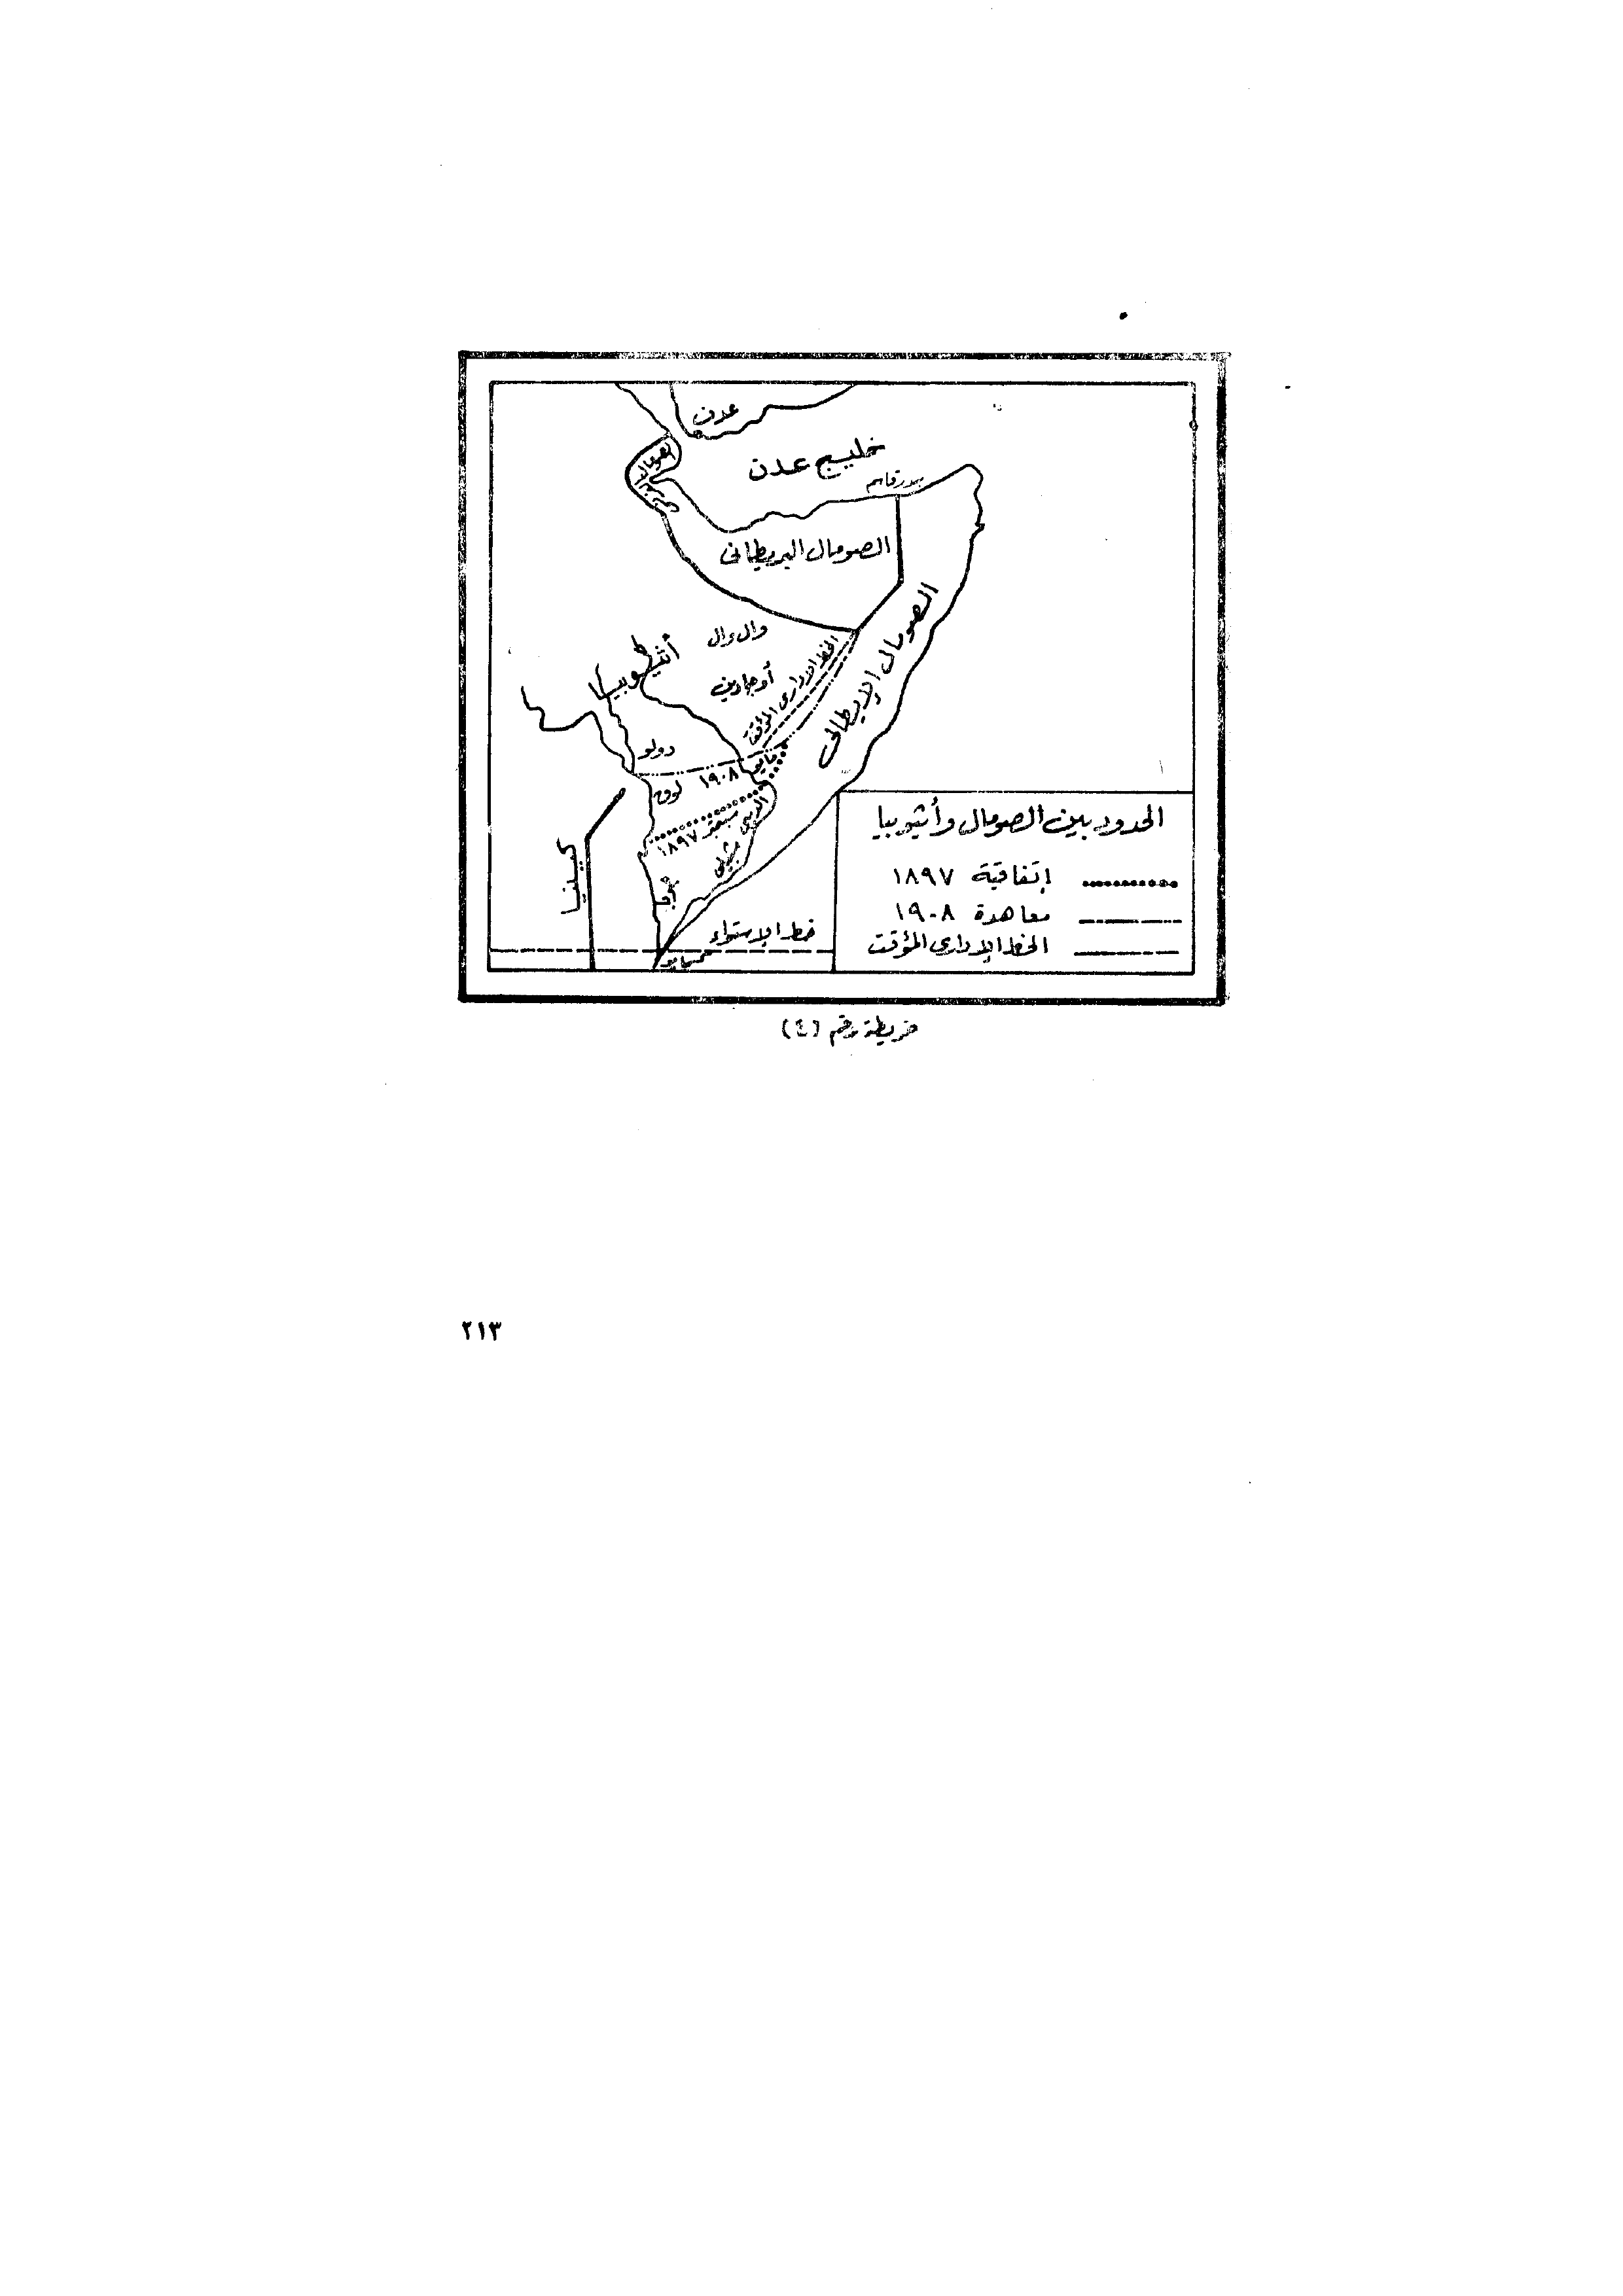 عدن
خليج عدن
الصومال
الصومال البريطانى
الصومال الإيطالى
وال وال
أثيوبيا
أوجادين
الخط الإدارى المؤقت
دولو
مايو ١٩٠٨
لوق
سبتمبر ١٨٩٧
شبيلى
جوبا
كينيا
خط الإستواء
الحدود بين الصومال وأثيوبيا
إتفاقية ١٨٩٧
معاهدة ١٩٠٨
الخط الإدارى المؤقت
خريطة رقم (٤)
٢١٣